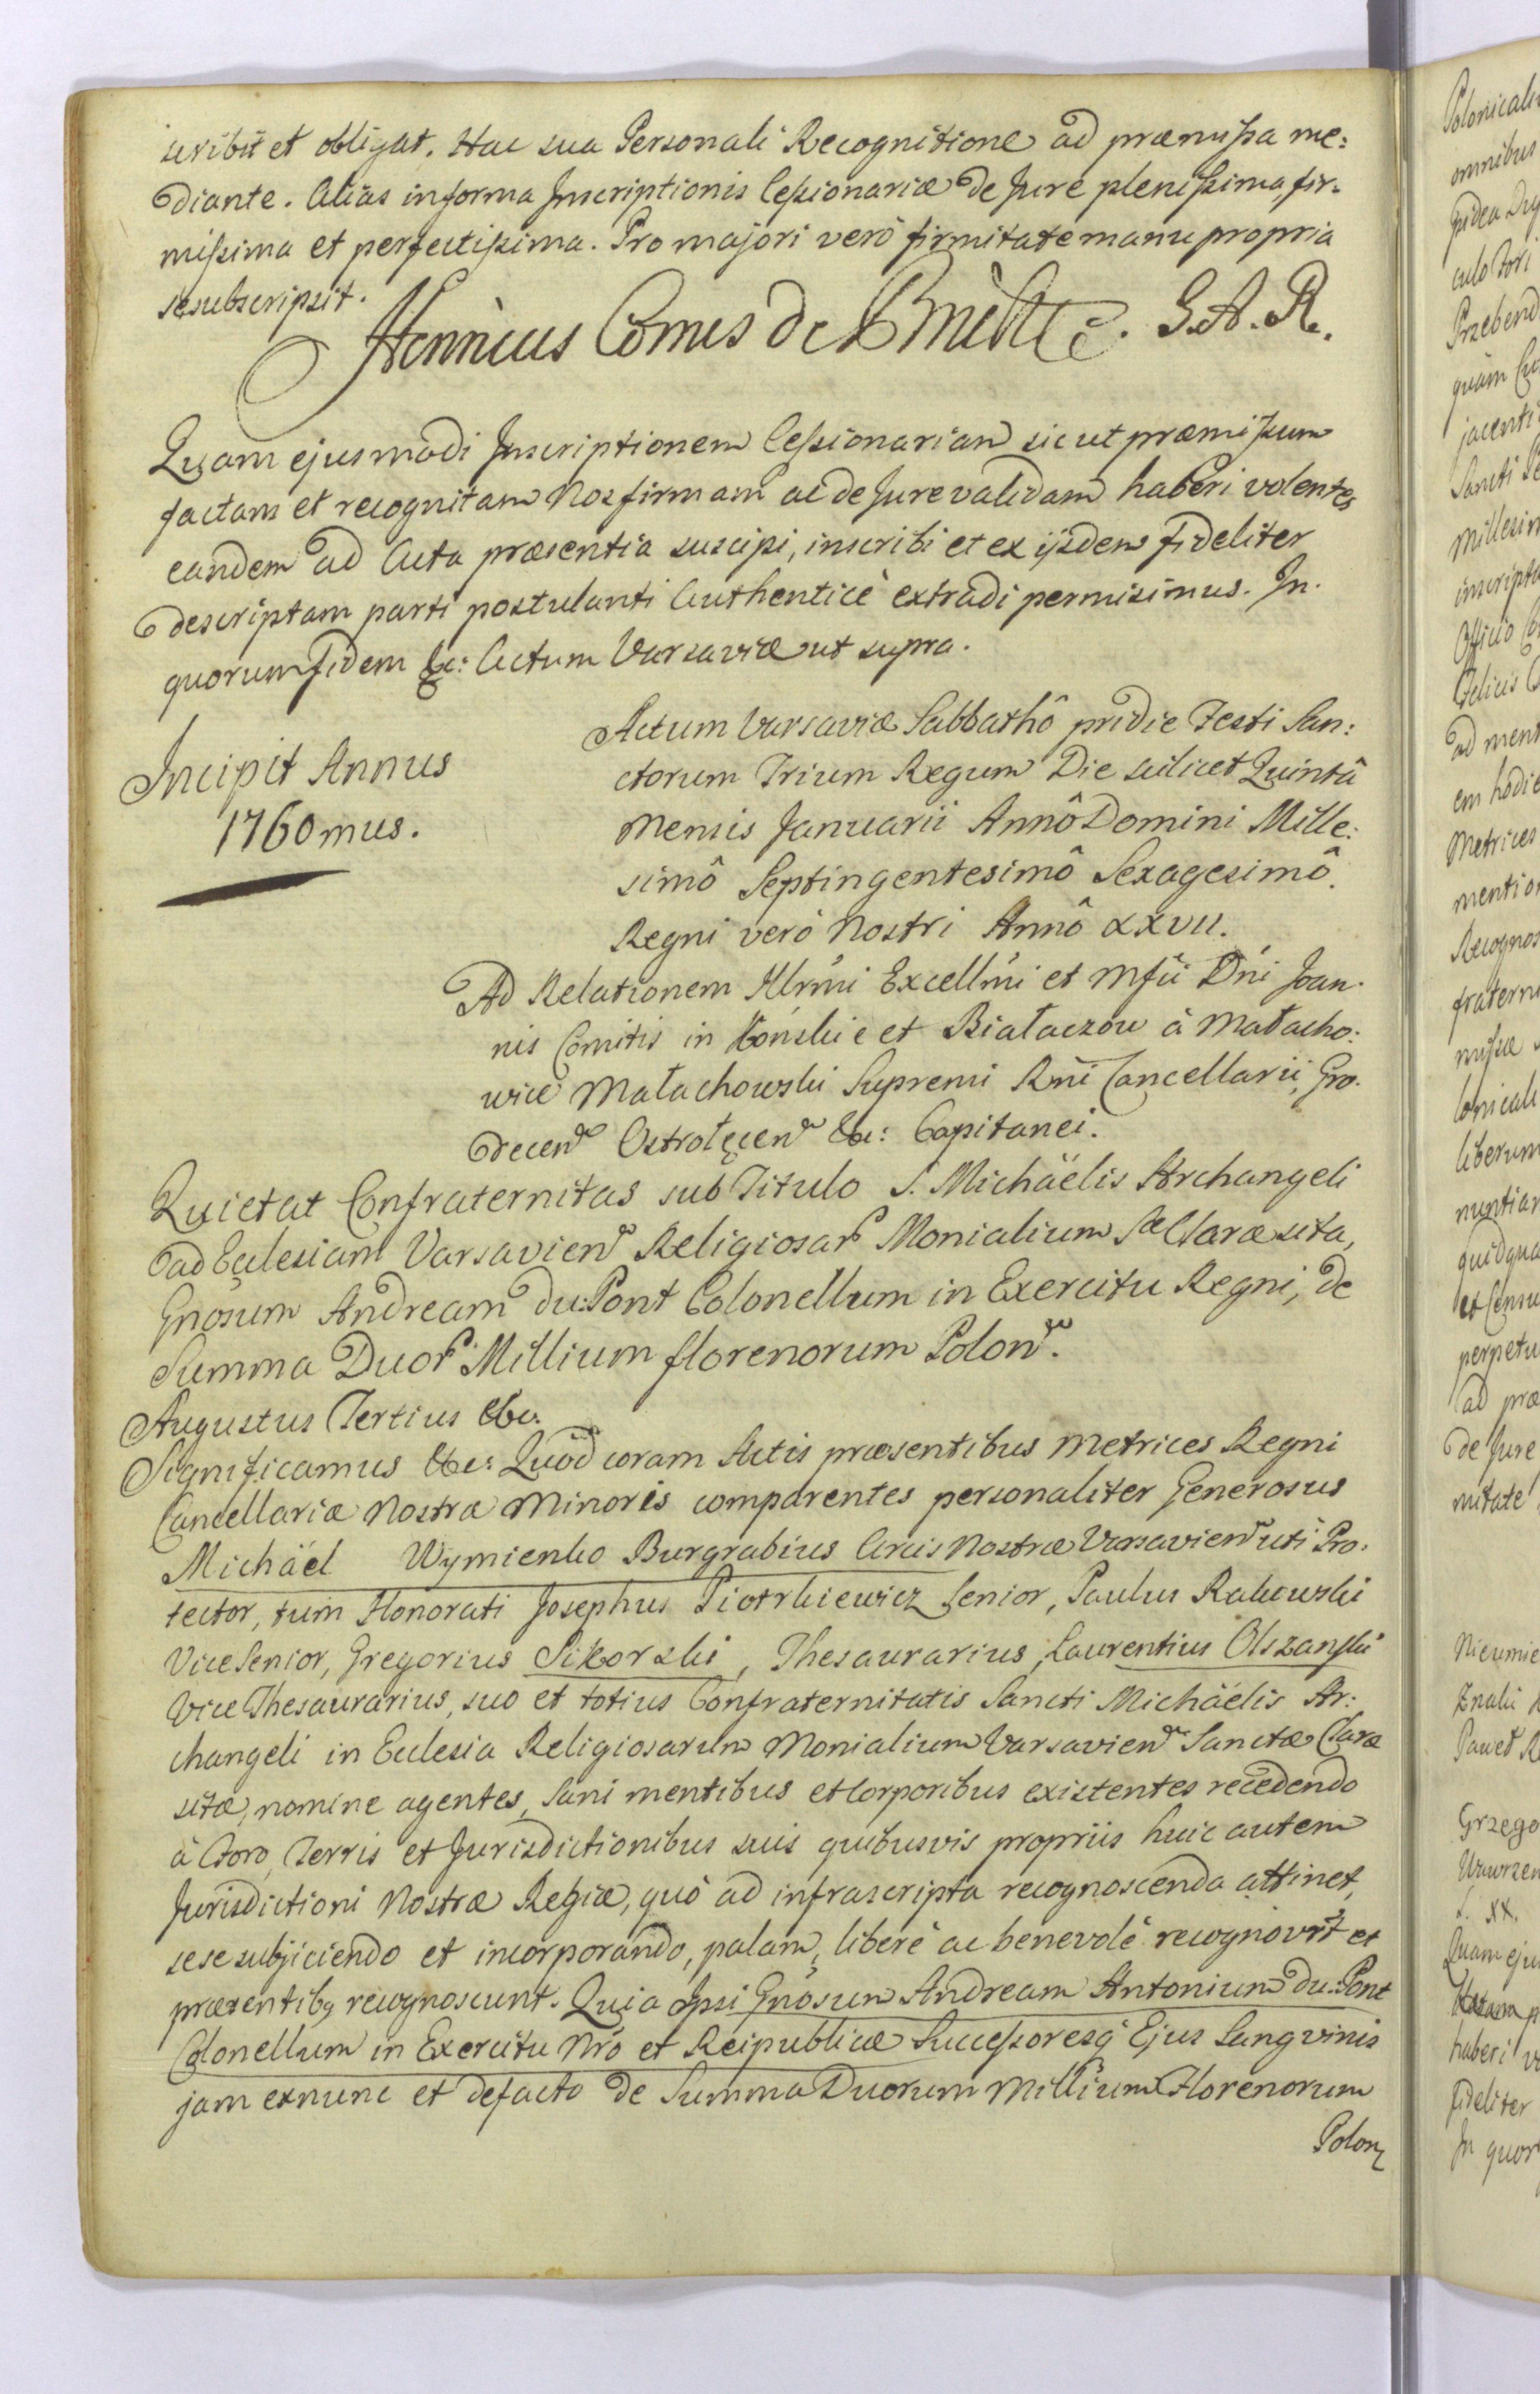 scribit et obligat. Hac sua Personali Recognitione ad præmissa me:
diante. Alias in forma Inscriptionis Cessionariæ de Jure plenissima, fir=
missima et perfectissima. Pro majori verò firmitate manu propria
se subscripsit.
Henricus Comes de Brühl G. A. R.
Quam ejusmodi Inscriptionem Cessionariam sicut præmissum
factam et recognitam Nos firmam ac de Jure validam haberi volentes
eandem ad Acta præsentia suscipi, inscribi et ex ijsdem fideliter
descriptam parti postulanti Authenticè extradi permisimus. In
quorum fidem &c: Actum Varsaviæ ut supra.
Incipit Annus
1760mus.
Actum Varsaviæ Sabbathô pridie Festi San:
ctorum Trium Regum Die scilicet Quintâ
Mensis Januarii Annô Domini Mille:
simô Septingentesimô Sexagesimô.
Regni verò Nostri Annô XXVII.
Ad Relationem Illrmi Excellmi et Mfci Dni Joan.
nis Comitis in Końskie et Białaczow à Małacho:
wice Małachowski Supremi Rni Cancellarii, Gro.
decen Ostrołęcen &c: Capitanei.
Quietat Confraternitas sub Titulo S. Michäelis Archangeli
ad Ecclesiam Varsavien Religiosar Monialium Sæ Claræ sita,
Gnosum Andream du:Pont Colonellum in Exercitu Regni, de
Summa Duor Millium florenorum Polon.
Augustus Tertius &c.
Significamus &c: Quod coram Actis præsentibus Metrices Regni
Cancellariæ Nostræ Minoris comparentes personaliter Generosus
Michäel Wymienko Burgrabius Arcis Nostræ Varsavien uti Pro.
tector, tum Honorati Josephus Piotrkiewicz Senior, Paulus Rakowski
Vice Senior, Gregorius Sikorski, Thesaurarius, Laurentius Olszański
Vice Thesaurarius, suo et totius Confraternitatis Sancti Michäelis Ar:
changeli in Ecclesia Religiosarum Monialium Varsavien Sanctæ Claræ
sitæ, nomine agentes, Sani mentibus et Corporibus existentes recedendo
à Foro, Terris et Jurisdictionibus suis quibusvis propriis huic autem
Jurisdictioni Nostræ Regiæ, quò ad infrascripta recognoscenda attinet,
sese subjiciendo et incorporando, palam, liberè ac benevolè recognovrt et
præsentibq recognoscunt. Quia Ipsi Gnosum Andream Antonium du:Pont
Colonellum in Exercitu Nro et Reipublicæ Successoresq Ejus Sangvinis
jam exnunc et defacto de Summa Duorum Millium Florenorum
Polon